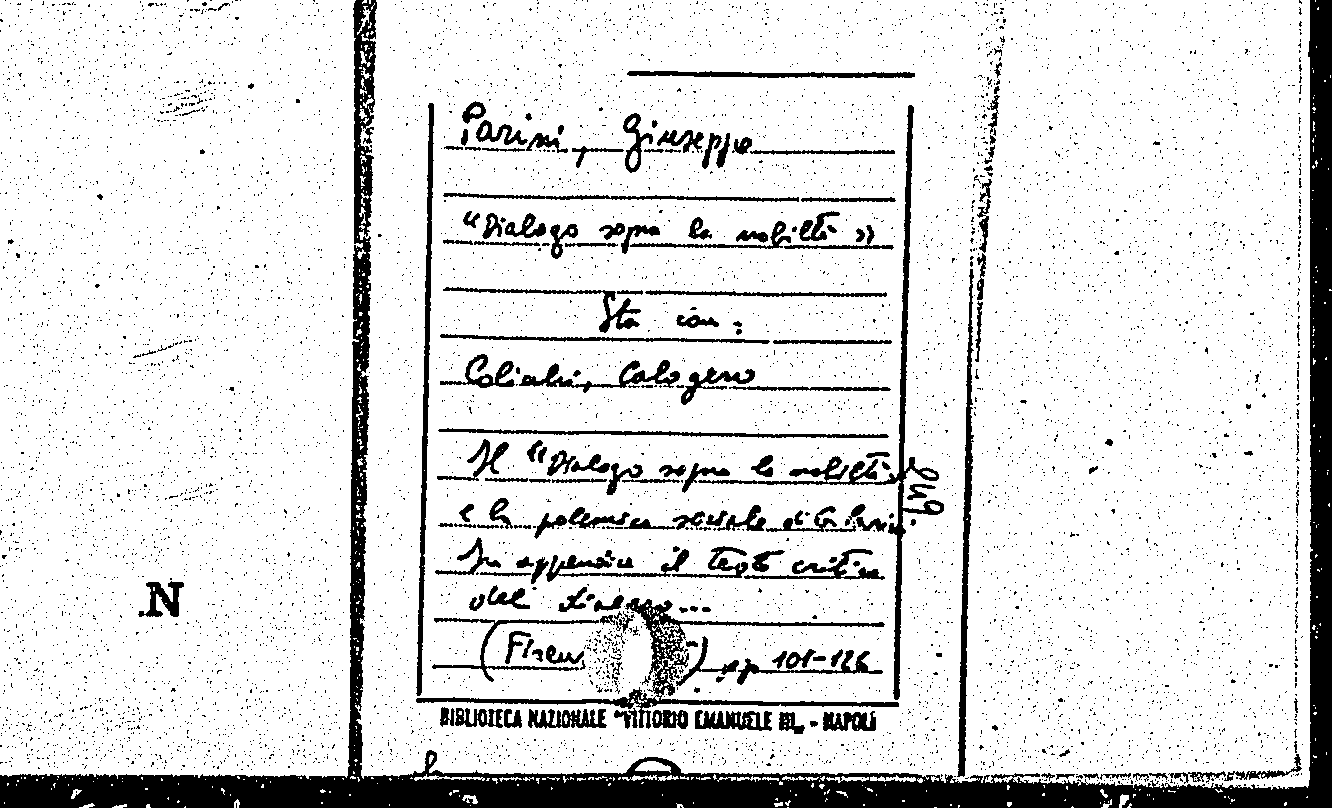 Parini, Giuseppe
"Dialogo sopra la nobiltà »
Sta con:
Colicchi, Calogero
Il "Dialogo sopra la nobiltà"
e la polemica sociale di G. Parini.
In appendice il testo critico
del dialogo...
(Firen ) pp 101-126
BIBLIOTECA NAZIONALE "VITTORIO EMANUELE III" - NAPOLI
.N